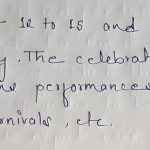 - 12 to 15 and
y. The celebrat
performances
rnivals, etc.